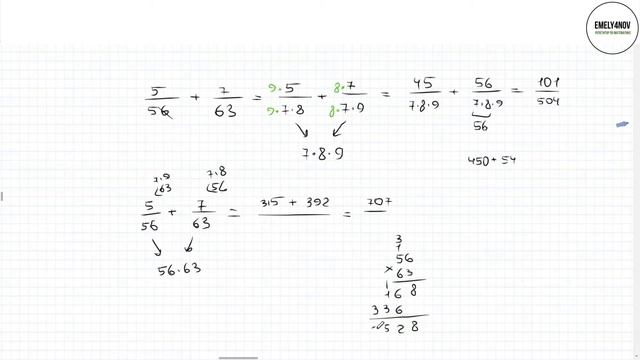 EMELY4NOV
РЕПЕТИТОР ПО МАТЕМАТИКЕ
5/56 + 7/63 = 9·5/9·7·8 + 8·7/8·7·9 = 45/7·8·9 + 56/7·8·9 = 101/504
56
7·8·9
450+54
7·9 7·8
63 56
5/56 + 7/63 = 315 + 392 = 707
56·63
3
1
56
× 63
1
168
336
528